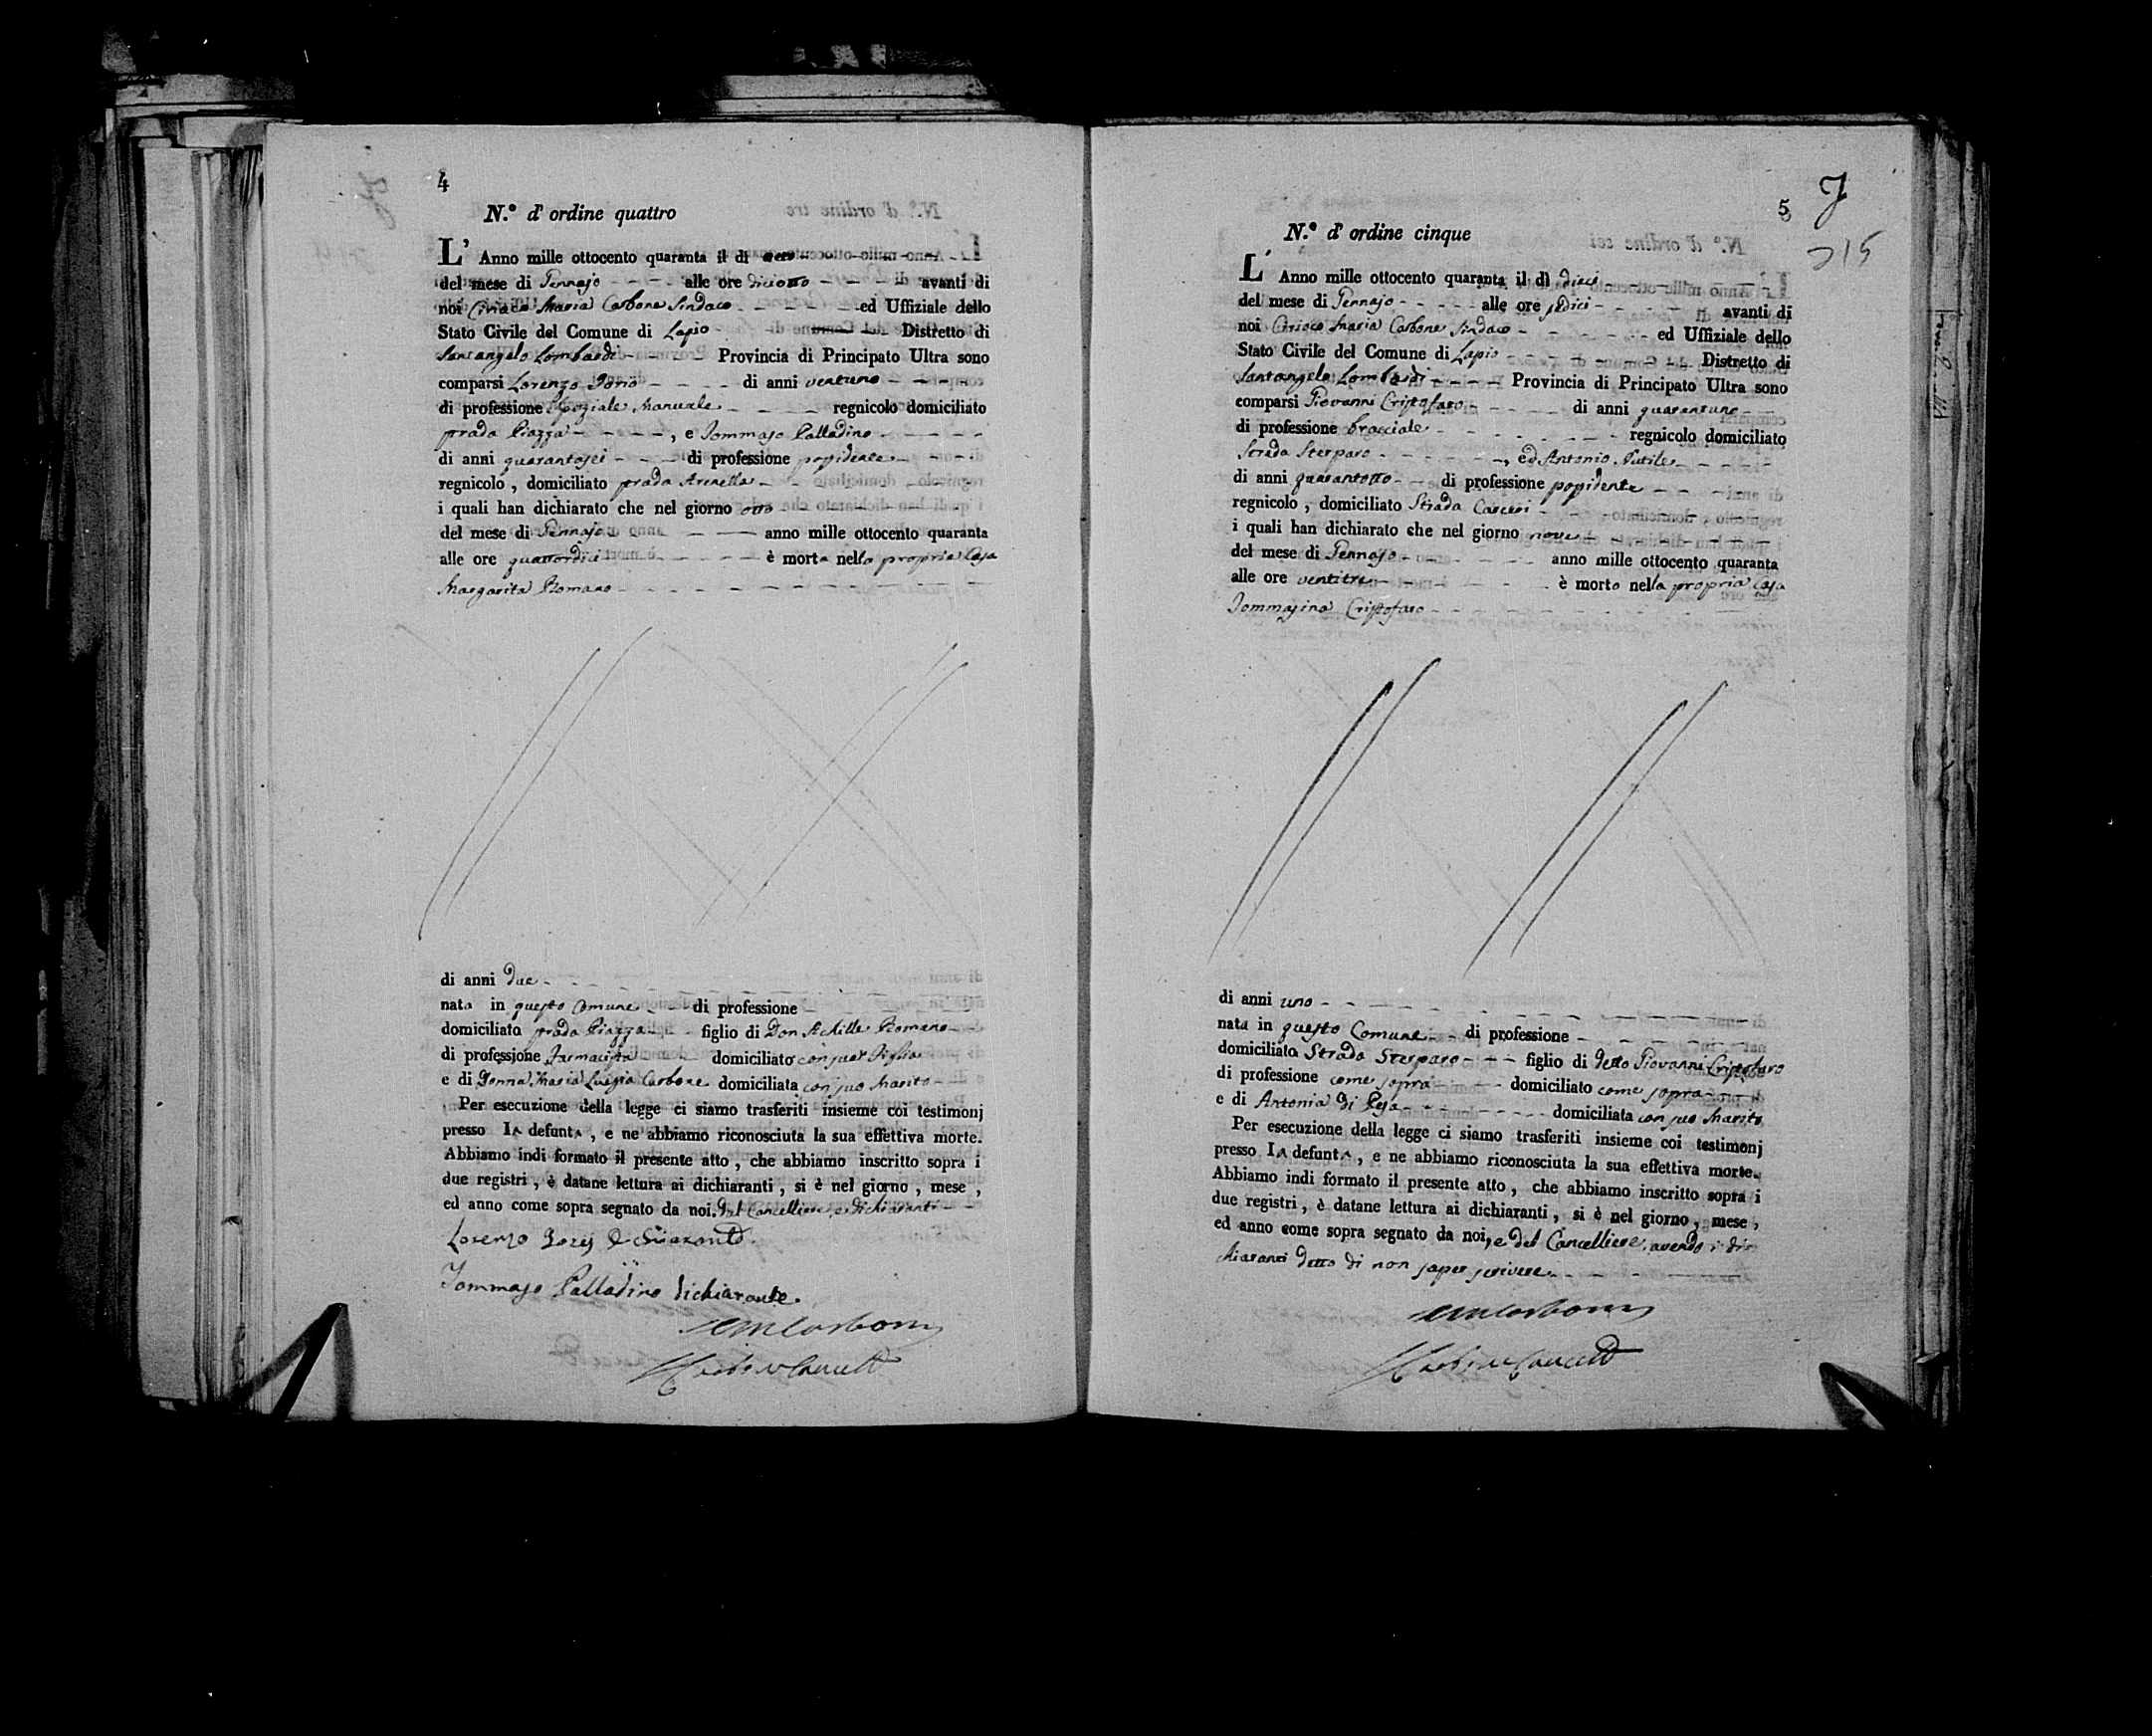 4
N.º d' ordine quattro
L' Anno mille ottocento quaranta il di otto
del mese di Gennajo alle ore diciotto avanti di
noi Ciriaco Maria Carbone Sindaco ed Uffiziale dello
Stato Civile del Comune di Lapio Distretto di
Santangelo Lombardi Provincia di Principato Ultra sono
comparsi Lorenzo di anni ventuno
di professione Speziale Manuale regnicolo domiciliato
strada Piazza , e Tommaso Palladino
di anni quarantasei di professione possidente
regnicolo , domiciliato strada Arenella
i quali han dichiarato che nel giorno otto
del mese di Gennajo anno mille ottocento quaranta
alle ore quattordici è morta nella propria Casa
Margarita Romano
di anni due
nata in questo Comune di professione
domiciliato strada Piazza figlio di Don Achille Romano
di professione Farmacista domiciliato con sua Figlia
e di Donna Maria Luigia Carbone domiciliata con suo Marito
Per esecuzione della legge ci siamo trasferiti insieme coi testimonj
presso la defunta , e ne abbiamo riconosciuta la sua effettiva morte.
Abbiamo indi formato il presente atto , che abbiamo inscritto sopra i
due registri , è datane lettura ai dichiaranti , si è nel giorno , mese ,
ed anno come sopra segnato da noi, dal Cancelliere, e dichiaranti
Lorenzo dichiarante
Tommaso Palladino dichiarante
CMCarbone
5
215
N.º d' ordine cinque
L' Anno mille ottocento quaranta il di dieci
del mese di Gennajo alle ore sedici avanti di
noi Ciriaco Maria Carbone Sindaco ed Uffiziale dello
Stato Civile del Comune di Lapio Distretto di
Santangelo Lombardi Provincia di Principato Ultra sono
comparsi Giovanni Cristofaro di anni quarantuno
di professione bracciale regnicolo domiciliato
Strada Sterparo , ed Antonio Nutile
di anni quarantotto di professione possidente
regnicolo , domiciliato Strada Carceri
i quali han dichiarato che nel giorno nove
del mese di Gennajo anno mille ottocento quaranta
alle ore ventitre è morto nella propria casa
Tommasina Cristofaro
di anni uno
nata in questo Comune di professione
domiciliata Strada Sterparo figlio di detto Giovanni Cristofaro
di professione come sopra domiciliato come sopra
e di Antonia di domiciliata con suo Marito
Per esecuzione della legge ci siamo trasferiti insieme coi testimonj
presso la defunta , e ne abbiamo riconosciuta la sua effettiva morte.
Abbiamo indi formato il presente atto , che abbiamo inscritto sopra i
due registri , è datane lettura ai dichiaranti , si è nel giorno , mese ,
ed anno come sopra segnato da noi, e dal Cancelliere, avendo i di
chiaranti detto di non saper scrivere
CMCarbone